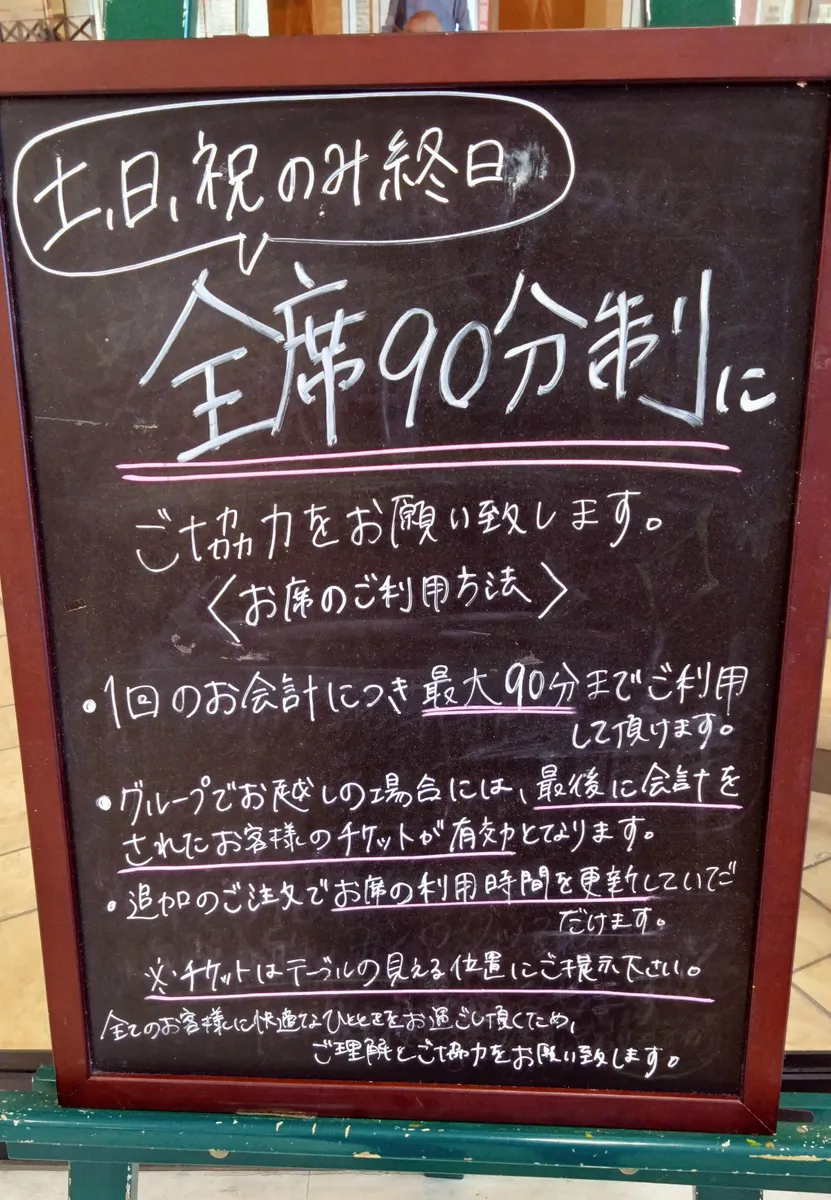 土、日、祝のみ終日
全席90分制に
ご協力をお願い致します。
〈お席のご利用方法〉
・1回のお会計につき最大90分までご利用
して頂けます。
・グループでお越しの場合には、最後に会計を
されたお客様のチケットが有効となります。
・追加のご注文でお席の利用時間を更新していだ
だけます。
※チケットはテーブルの見える位置にご提示下さい。
全てのお客様に快適なひとときをお過ごし頂くため、
ご理解とご協力をお願い致します。